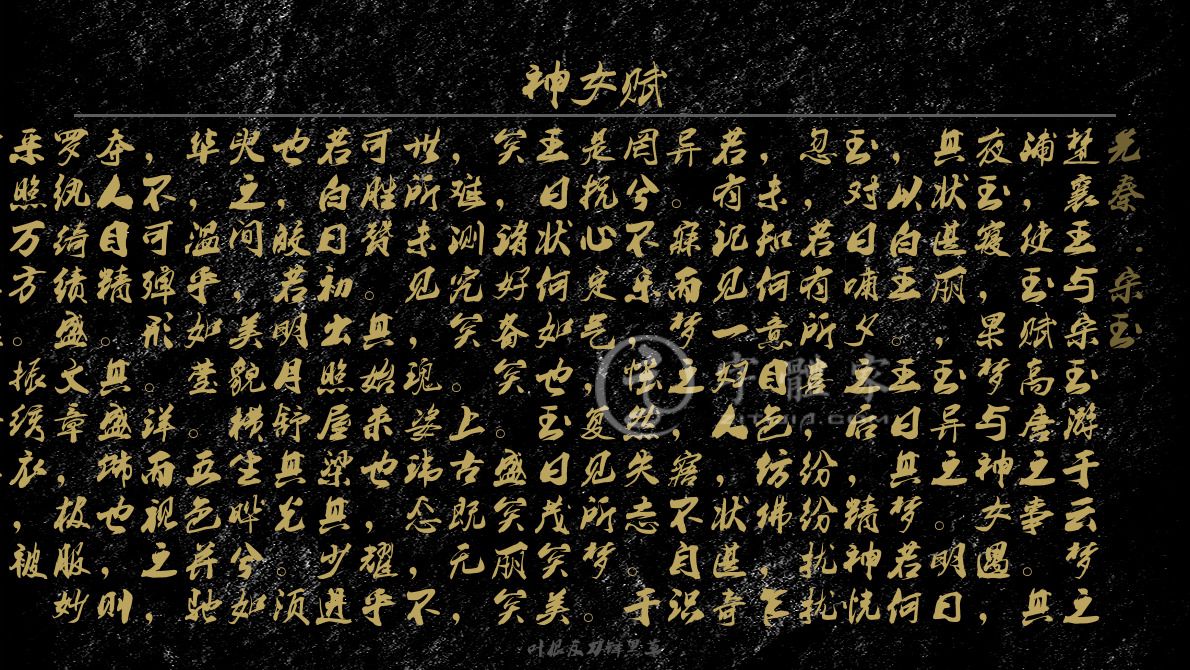 神女赋
先秦·宋玉
楚襄王与宋玉游于云梦之
浦，使玉赋高唐之事。其
夜玉寝，果梦与神女遇，
其状湛丽，玉异之。明曰
，以白王。王曰，其梦若何
玉对曰，嘯夕之后，精神恍
忽，若有所喜，纷纷扰扰
，未知何意。目色纷彿，乍
若有记见，一好人，状湛奇
异。寐而梦之，寤不自识
罔兮不乐，怅然失志。于
是抚心定气，复见所梦。
王曰状何如也。玉曰茂矣美
矣，诸好备矣。盛矣丽矣
，难测究矣。上古既无，
世所未见，瑰姿玮态，不
可胜赞。其始来也，耀乎
若白日初出照屋梁其少进
也，胶若明月舒其光。须
臾之间，美貌横生。晔兮如
华，温乎如莹。五色并驰
，不可殚形。详而视之，
夺人目精。其盛，也，则
罗纨绮绩盛文章，极服妙
采照万方。振绣衣，被
字體家
叶根友刀锋黑草